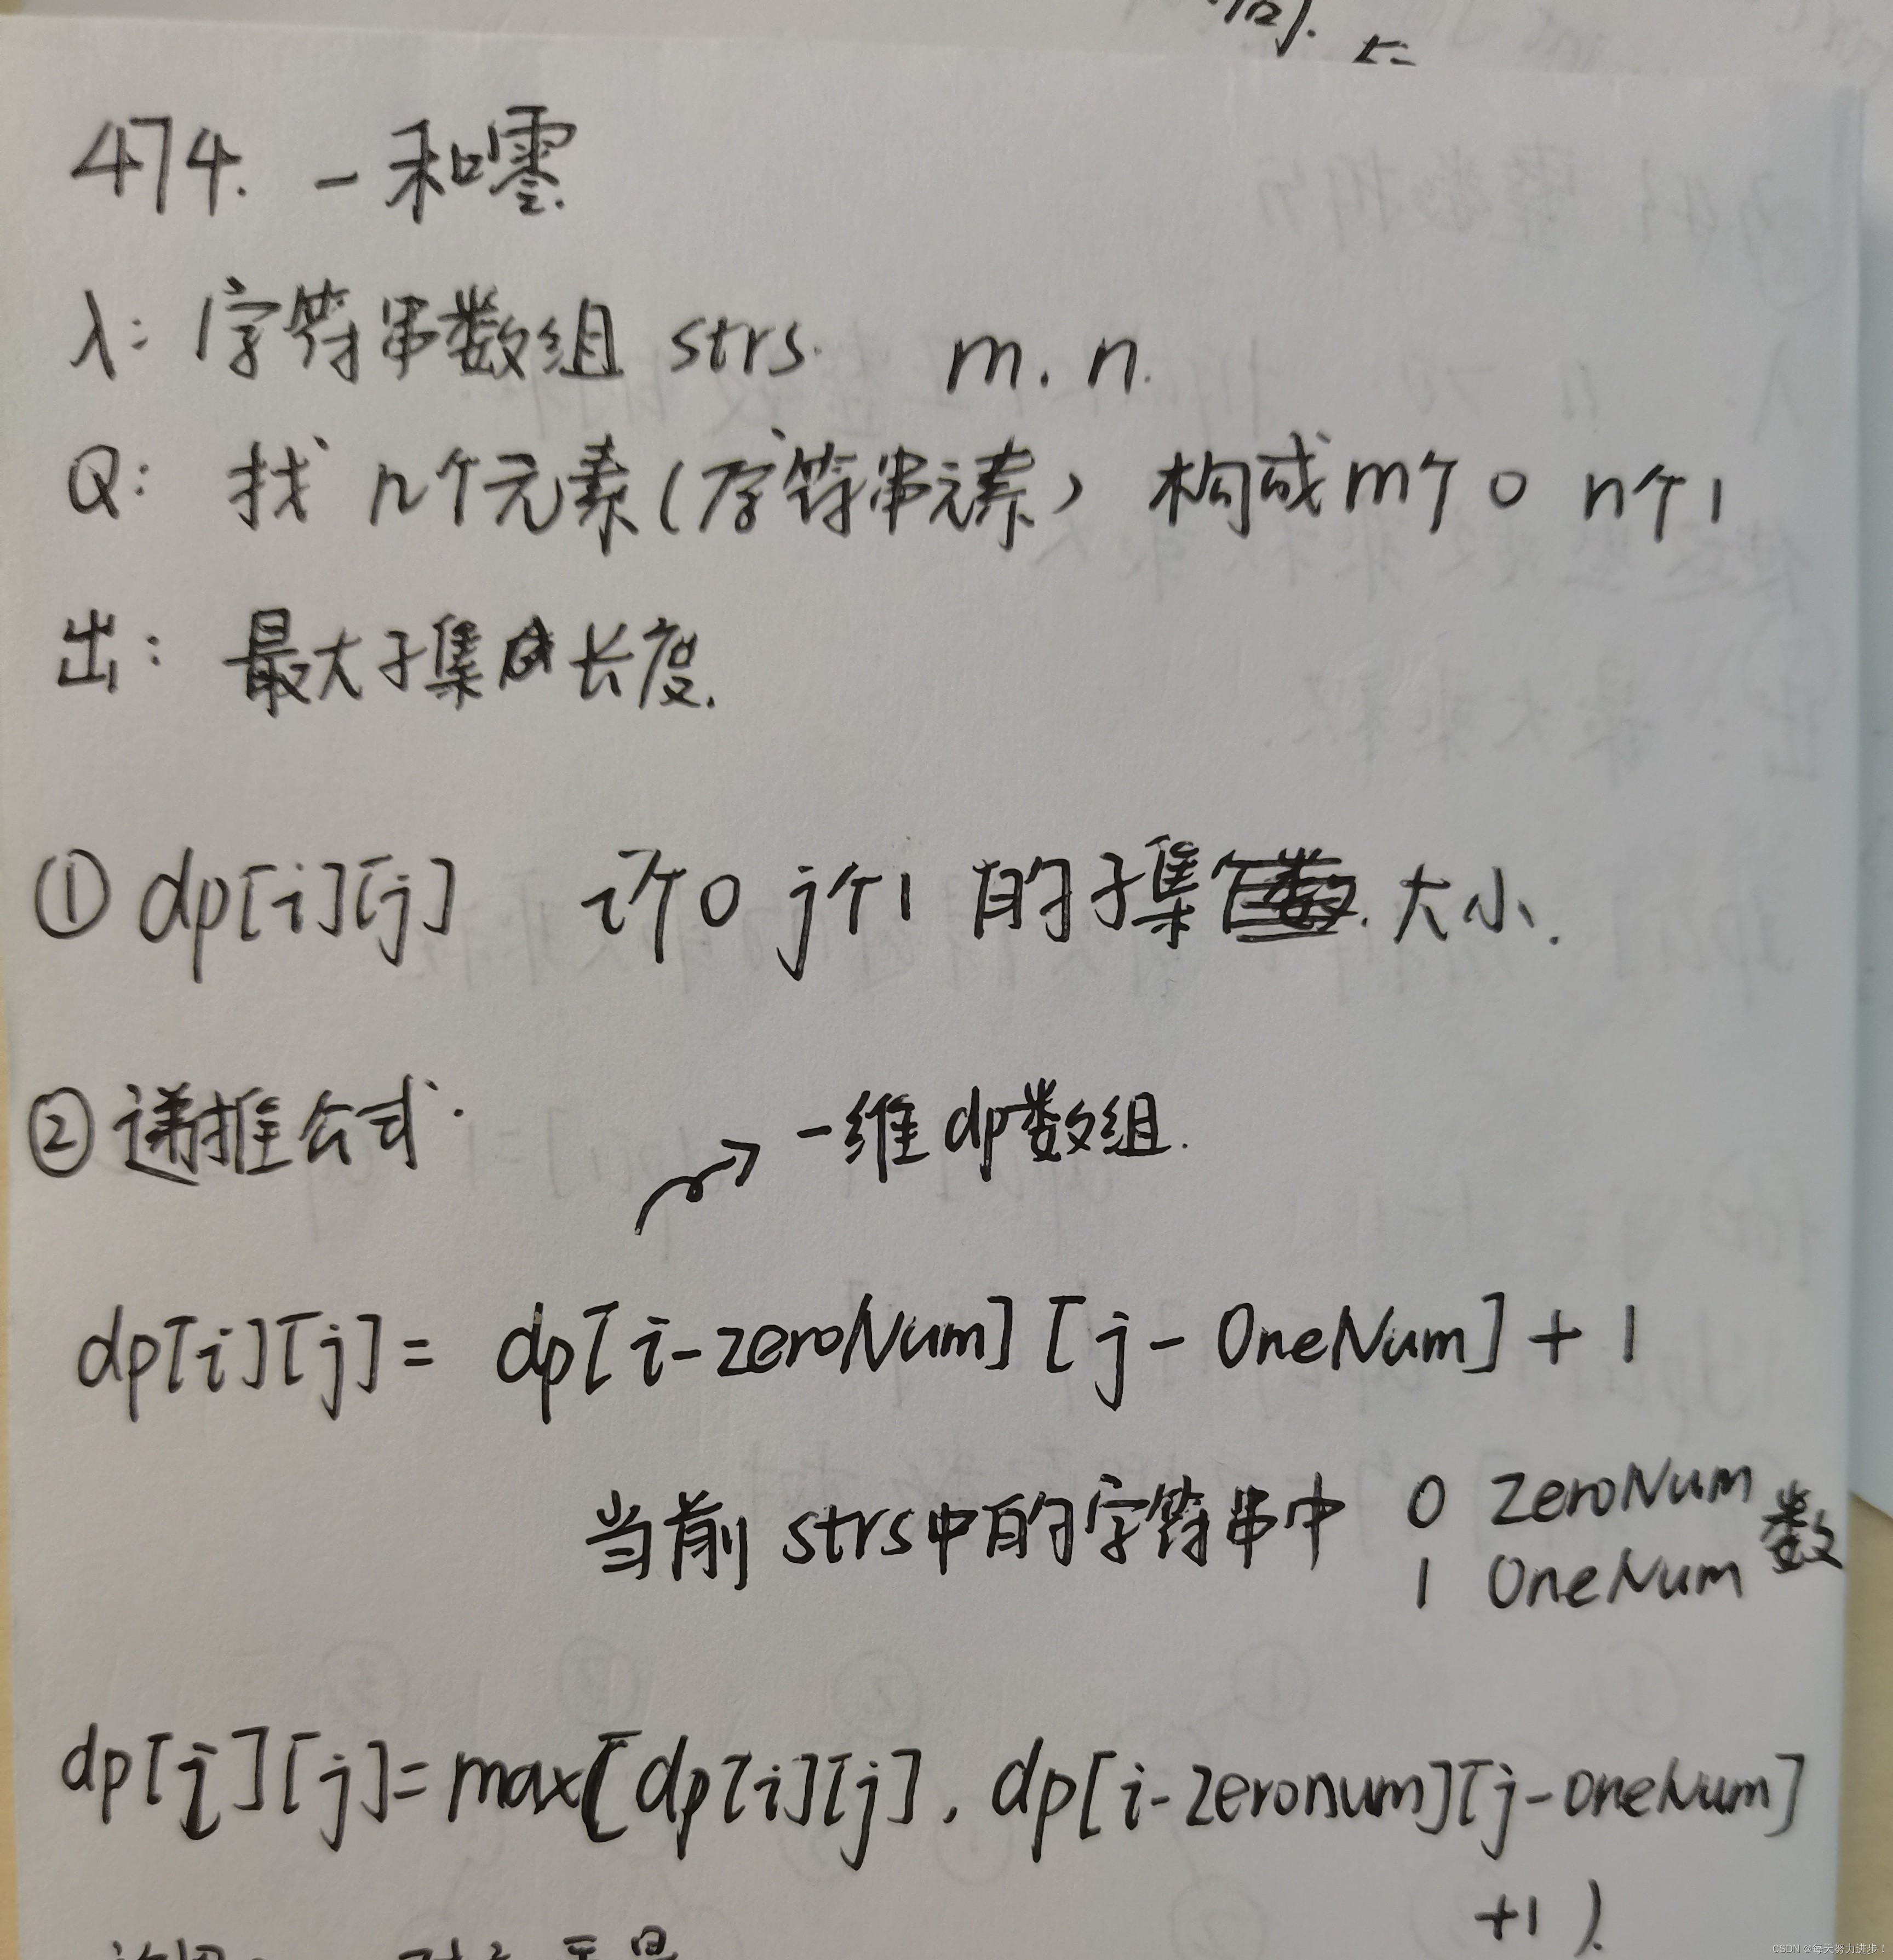 474. 一和零.
入: 1字符串数组 strs. m. n.
Q: 找 n个元素(字符串元素) 构成m个0 n个1
出: 最大子集的长度.
① dp[i][j] i个0 j个1 的子集 大小.
② 递推公式.
一维dp数组.
dp[i][j]= dp[i-zeroNum][j-OneNum]+1
当前 strs中的字符串中 0 zeroNum 数
1 OneNum
dp[i][j]=max(dp[i][j], dp[i-zeronum][j-oneNum]
+1).
CSDN @每天努力进步!